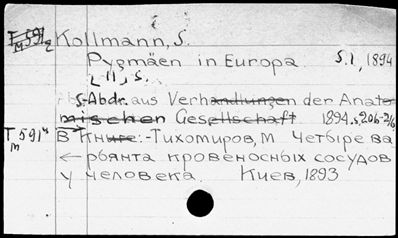 T 591 Kollmann, S.
M 2
Pygmäen in Europa. S. l, 1894
L 11, s.
S.-Abdr. aus Verhandlungen der Anato-
mischen Gesellschaft 1894. s. 206-
T 591 В Книге:- Тихомиров, М Четыре ва
м ← рьянта кровеносных сосудов
у человека. Киев, 1893